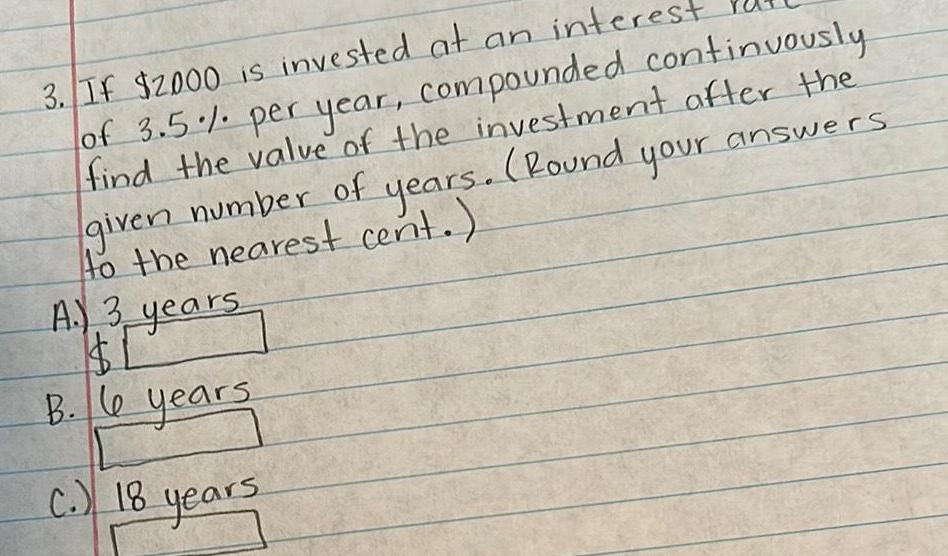 3. If $2000 is invested at an interest rate
of 3.5% per year, compounded continuously
find the value of the investment after the
given number of years. (Round your answers
to the nearest cent.)
A.) 3 years
$
B. 6 years
C.) 18 years